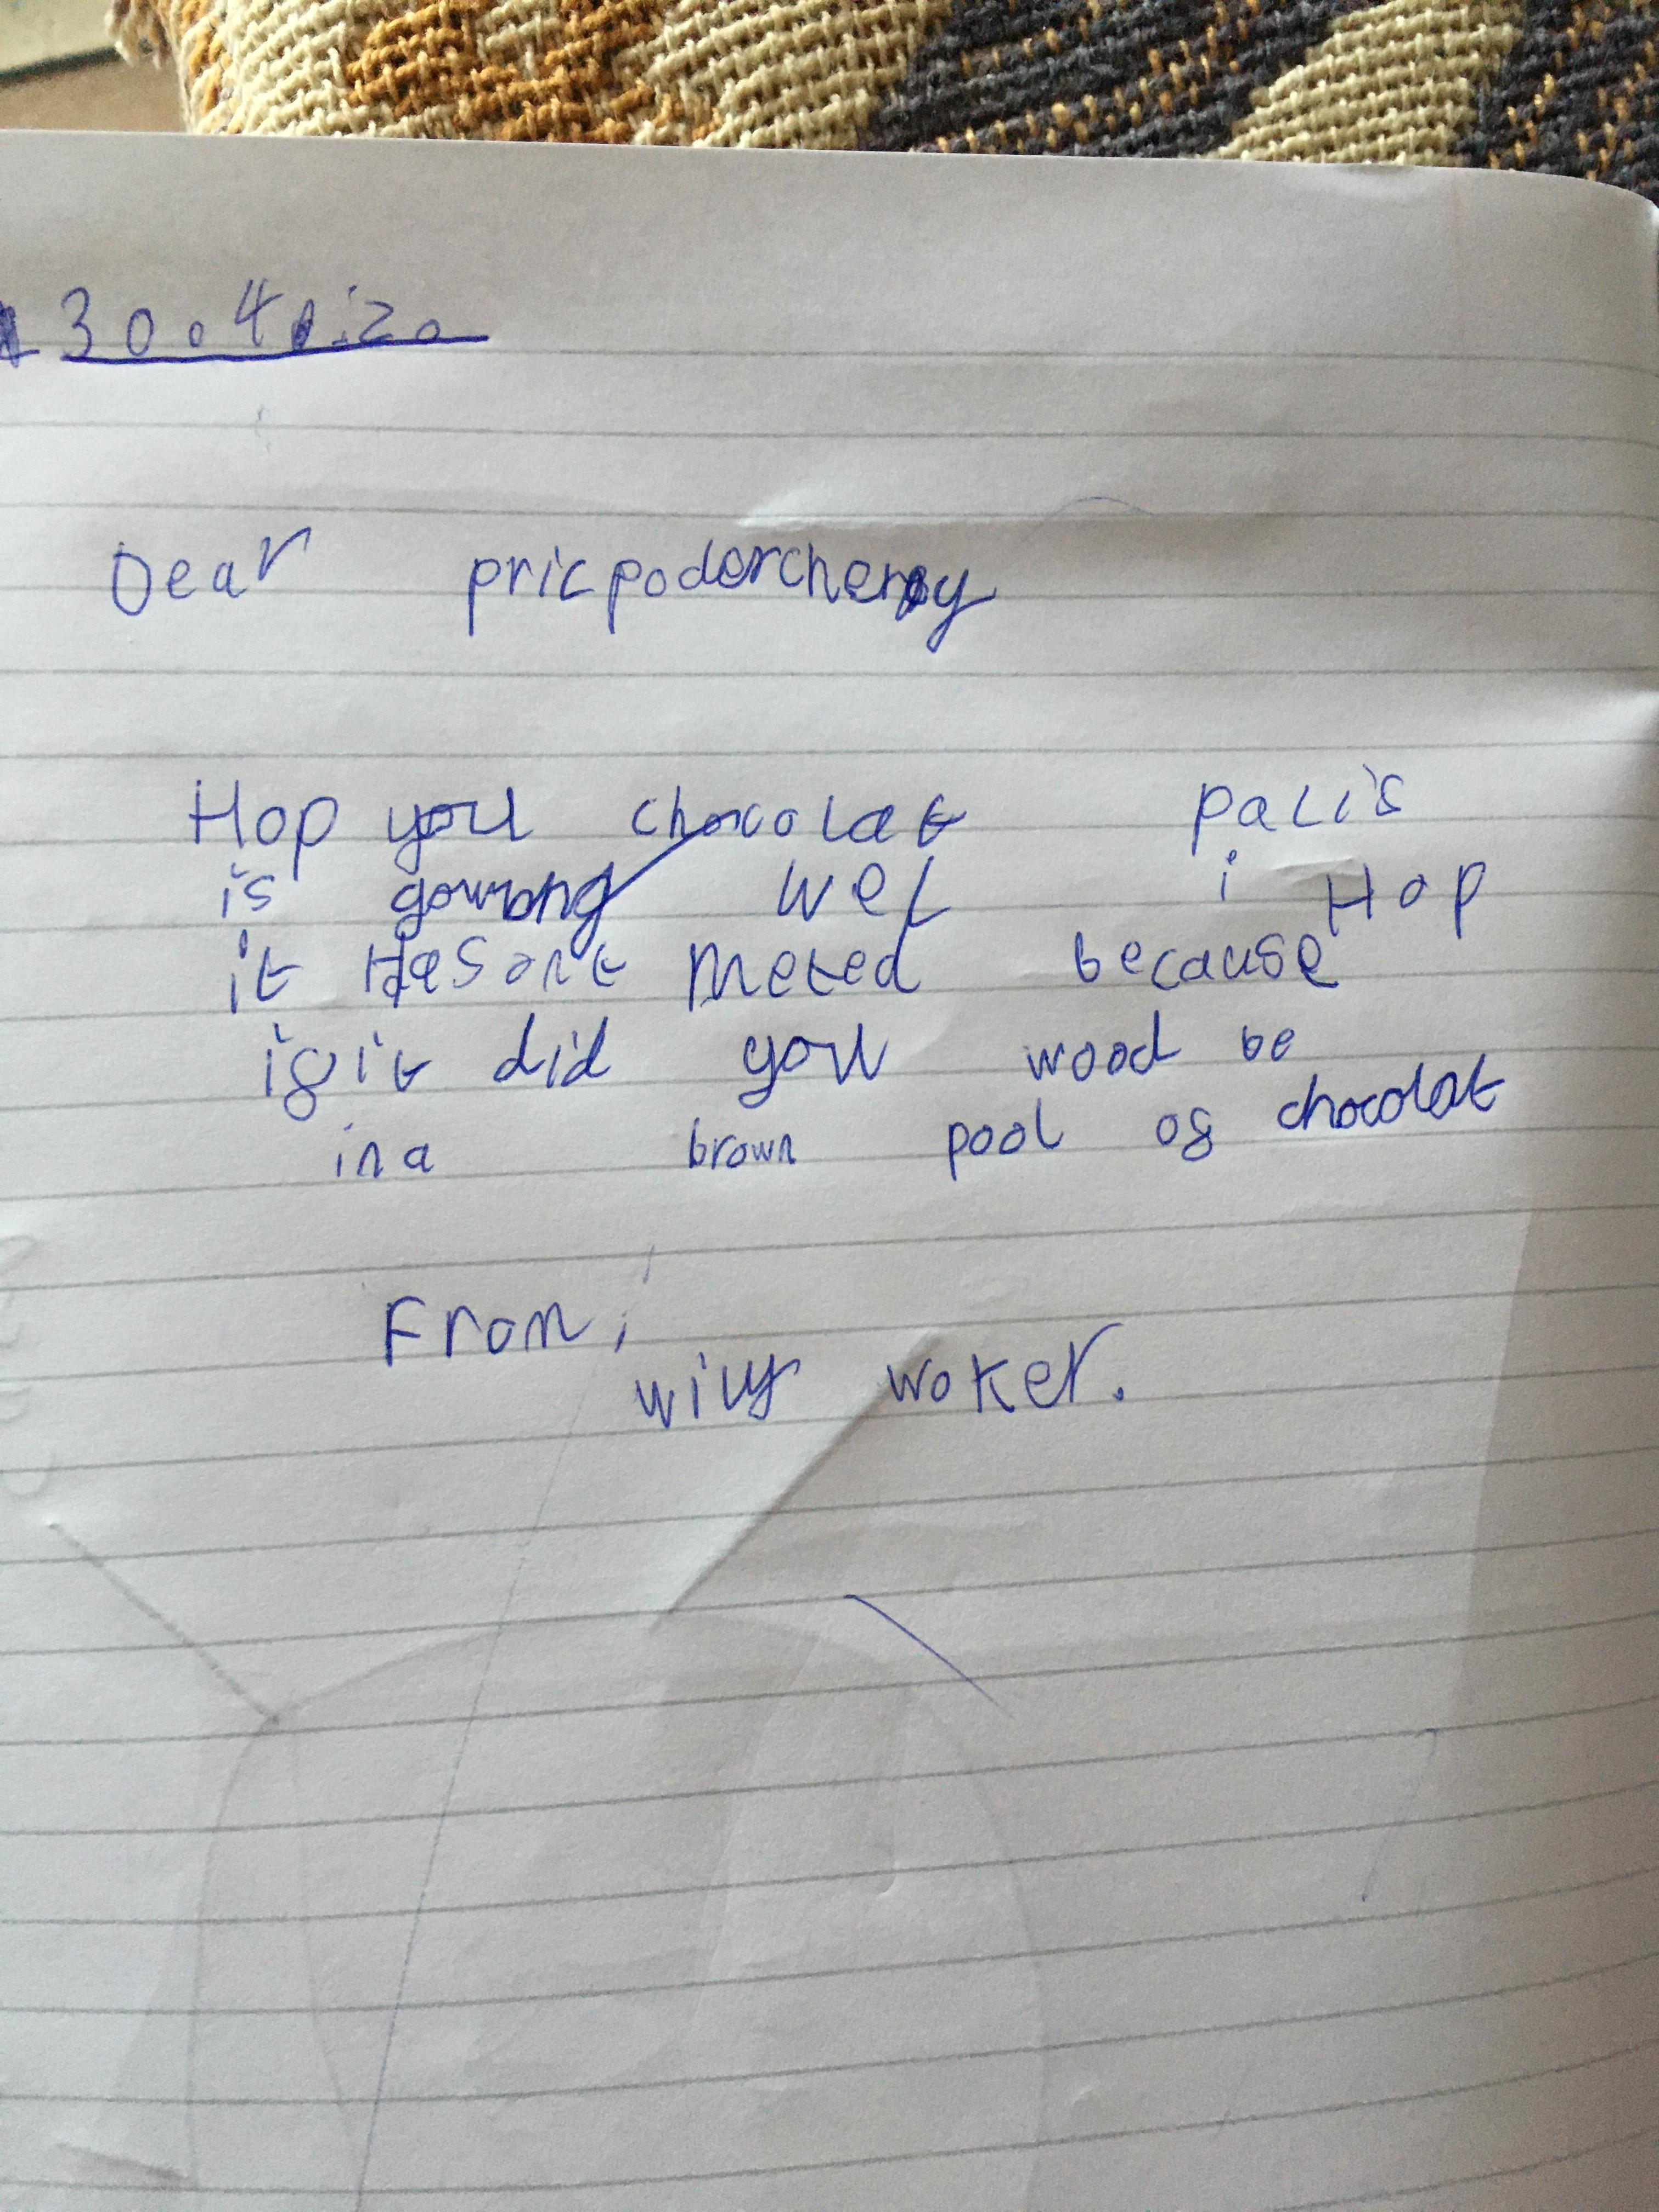 30.4.20
Dear pricpodercheny
Hop you chocolat palis
is gowing wel i Hop
it Hasont meted because
if it did you wood be
in a brown pool of chocolat
From,
wily woker.